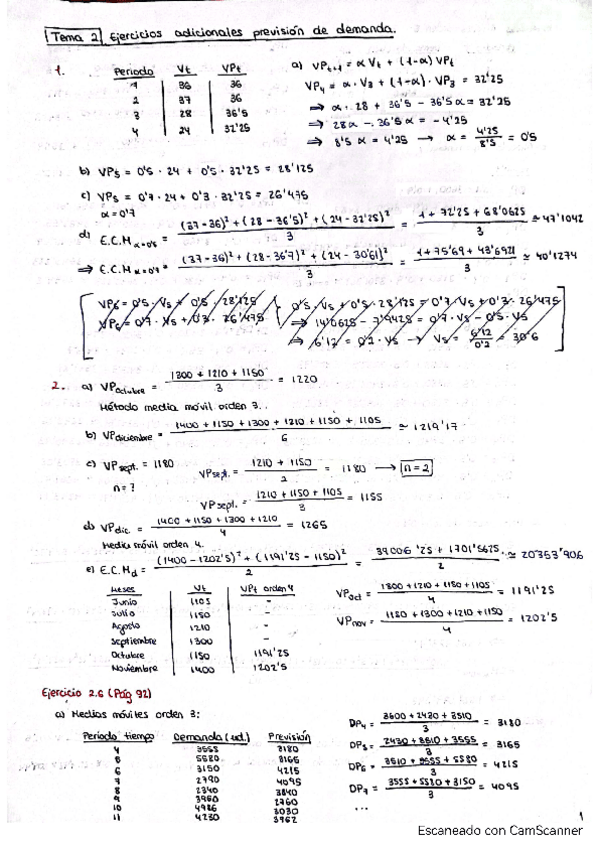 Tema 2 Ejercicios adicionales previsión de demanda.
1.
Periodo Vt VPt
1 36 36
2 37 36
3 28 36'5
4 24 32'25
a) VPt+1 = α Vt + (1-α) VPt
VP4 = α · V3 + (1-α) · VP3 = 32'25
⇒ α · 28 + 36'5 - 36'5 α = 32'25
⇒ 28α - 36'5 α = - 4'25
⇒ 8'5 α = 4'25 → α = 4'25 / 8'5 = 0'5
b) VP5 = 0'5 · 24 + 0'5 · 32'25 = 28'125
c) VP5 = 0'7 · 24 + 0'3 · 32'25 = 26'475
α = 0'7
d) E.C.M α=0'5 = (37-36)² + (28-36'5)² + (24-32'25)² / 3 = 1 + 72'25 + 68'0625 / 3 ≃ 47'1042
⇒ E.C.M α=0'7 = (37-36)² + (28-36'7)² + (24-30'61)² / 3 = 1 + 75'69 + 43'6921 / 3 ≃ 40'1274
VP6 = 0'5 · V5 + 0'5 · 28'125
VP6 = 0'7 · V5 + 0'3 · 26'475
0'5 · V5 + 0'5 · 28'125 = 0'7 · V5 + 0'3 · 26'475
⇒ 14'0625 - 7'9425 = 0'7 · V5 - 0'5 · V5
⇒ 6'12 = 0'2 · V5 → V5 = 6'12 / 0'2 = 30'6
2. a) VPoctubre = 1300 + 1210 + 1150 / 3 = 1220
Método media móvil orden 3.
b) VPdiciembre = 1400 + 1150 + 1300 + 1210 + 1150 + 1105 / 6 ≃ 1219'17
c) VPsept. = 1180
n = ?
VPsept. = 1210 + 1150 / 2 = 1180 → n = 2
VPsept. = 1210 + 1150 + 1105 / 3 = 1155
d) VPdic. = 1400 + 1150 + 1300 + 1210 / 4 = 1265
Media móvil orden 4.
e) E.C.Md = (1400 - 1202'5)² + (1191'25 - 1150)² / 2 = 39006'25 + 1701'5625 / 2 ≃ 20353'906
Meses Vt VPt orden 4
Junio 1105 -
Julio 1150 -
Agosto 1210 -
Septiembre 1300 -
Octubre 1150 1191'25
Noviembre 1400 1202'5
VPoct = 1300 + 1210 + 1150 + 1105 / 4 = 1191'25
VPnov = 1150 + 1300 + 1210 + 1150 / 4 = 1202'5
Ejercicio 2.6 (Pág 92)
a) Medias móviles orden 3:
Periodo tiempo Demanda (ud.) Previsión
4 3555 3180
5 5580 3165
6 3150 4215
7 2790 4095
8 2340 3840
9 3960 2760
10 4986 3030
11 4230 3762
DP4 = 3600 + 2430 + 3510 / 3 = 3180
DP5 = 2430 + 3510 + 3555 / 3 = 3165
DP6 = 3510 + 3555 + 5580 / 3 = 4215
DP7 = 3555 + 5580 + 3150 / 3 = 4095
...
1
Escaneado con CamScanner